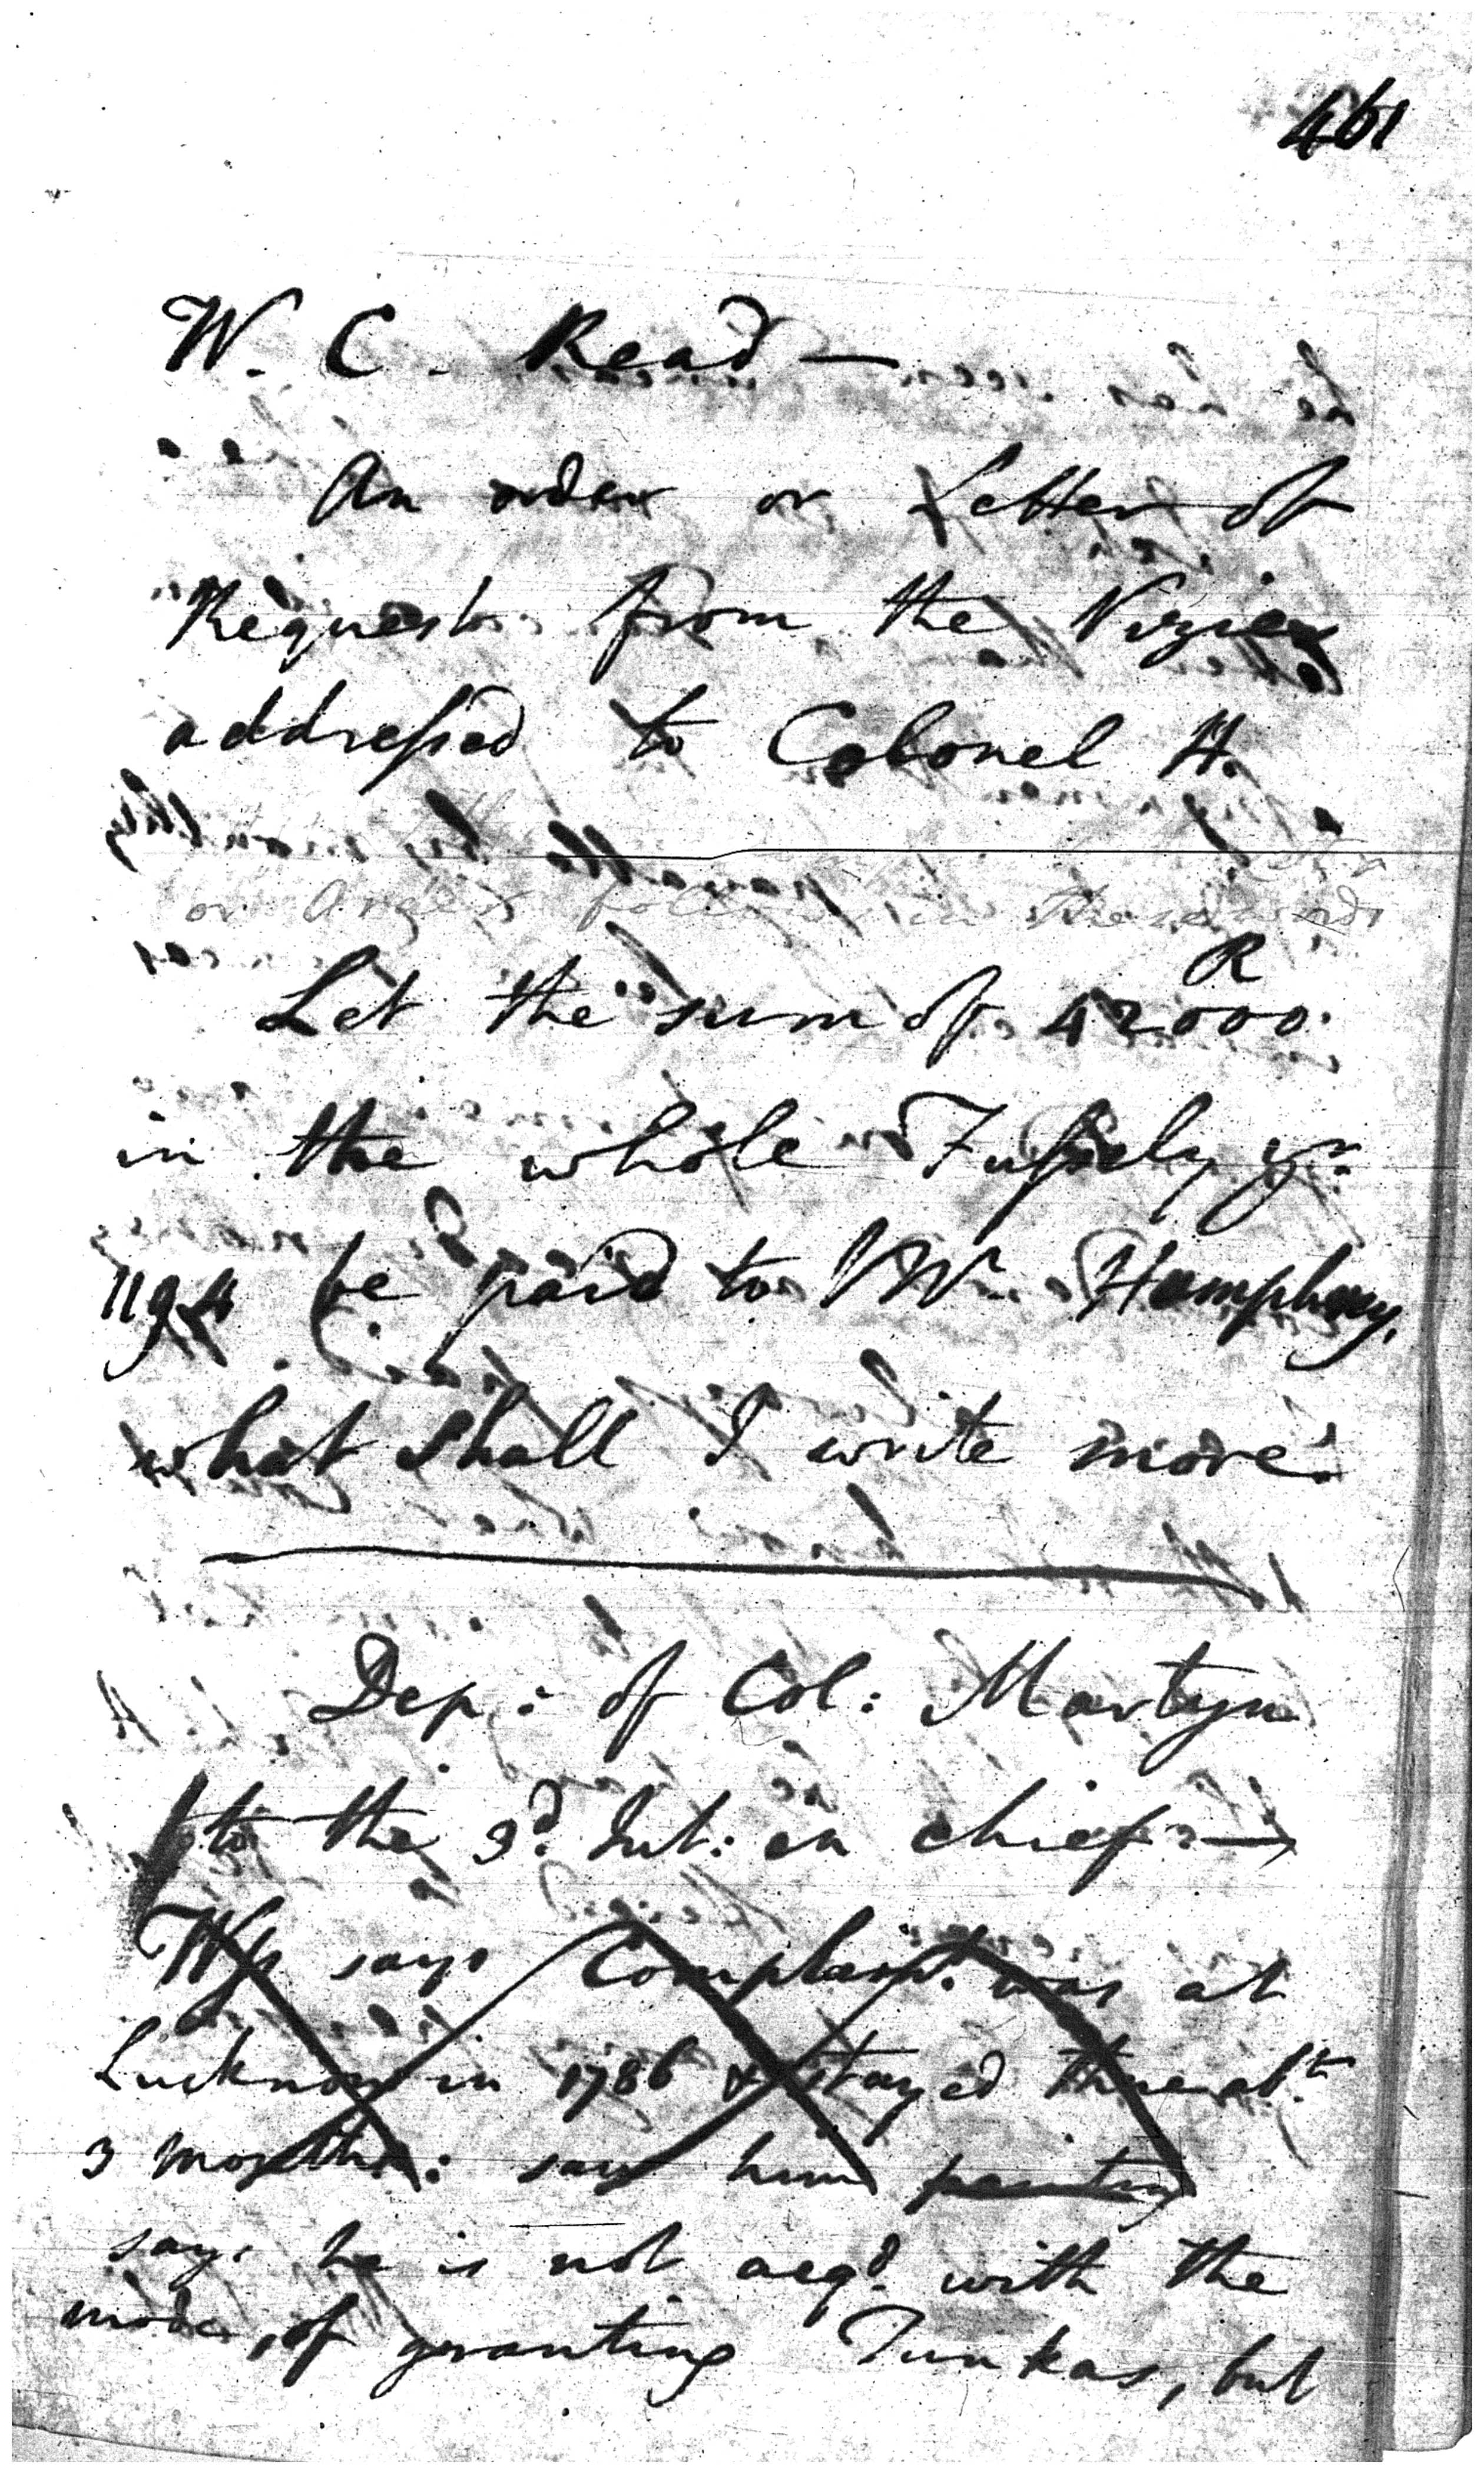 461
W. C. Read —
An order or Letter of
Request from the Vizier
addressed to Colonel H.
or Order follows in these words
Let the sum of 42000 R
in the whole Fussely yr.
1194 be paid to Mr. Humphrey,
what shall I write more.
Dep: of Col: Martyn
to the 3d. Int: in chief: —
Wss says Complaint. was at
Lucknow in 1786 & stayed there abt.
3 months: saw him painting
says he is not acqd. with the
mode of granting Tunkas, but